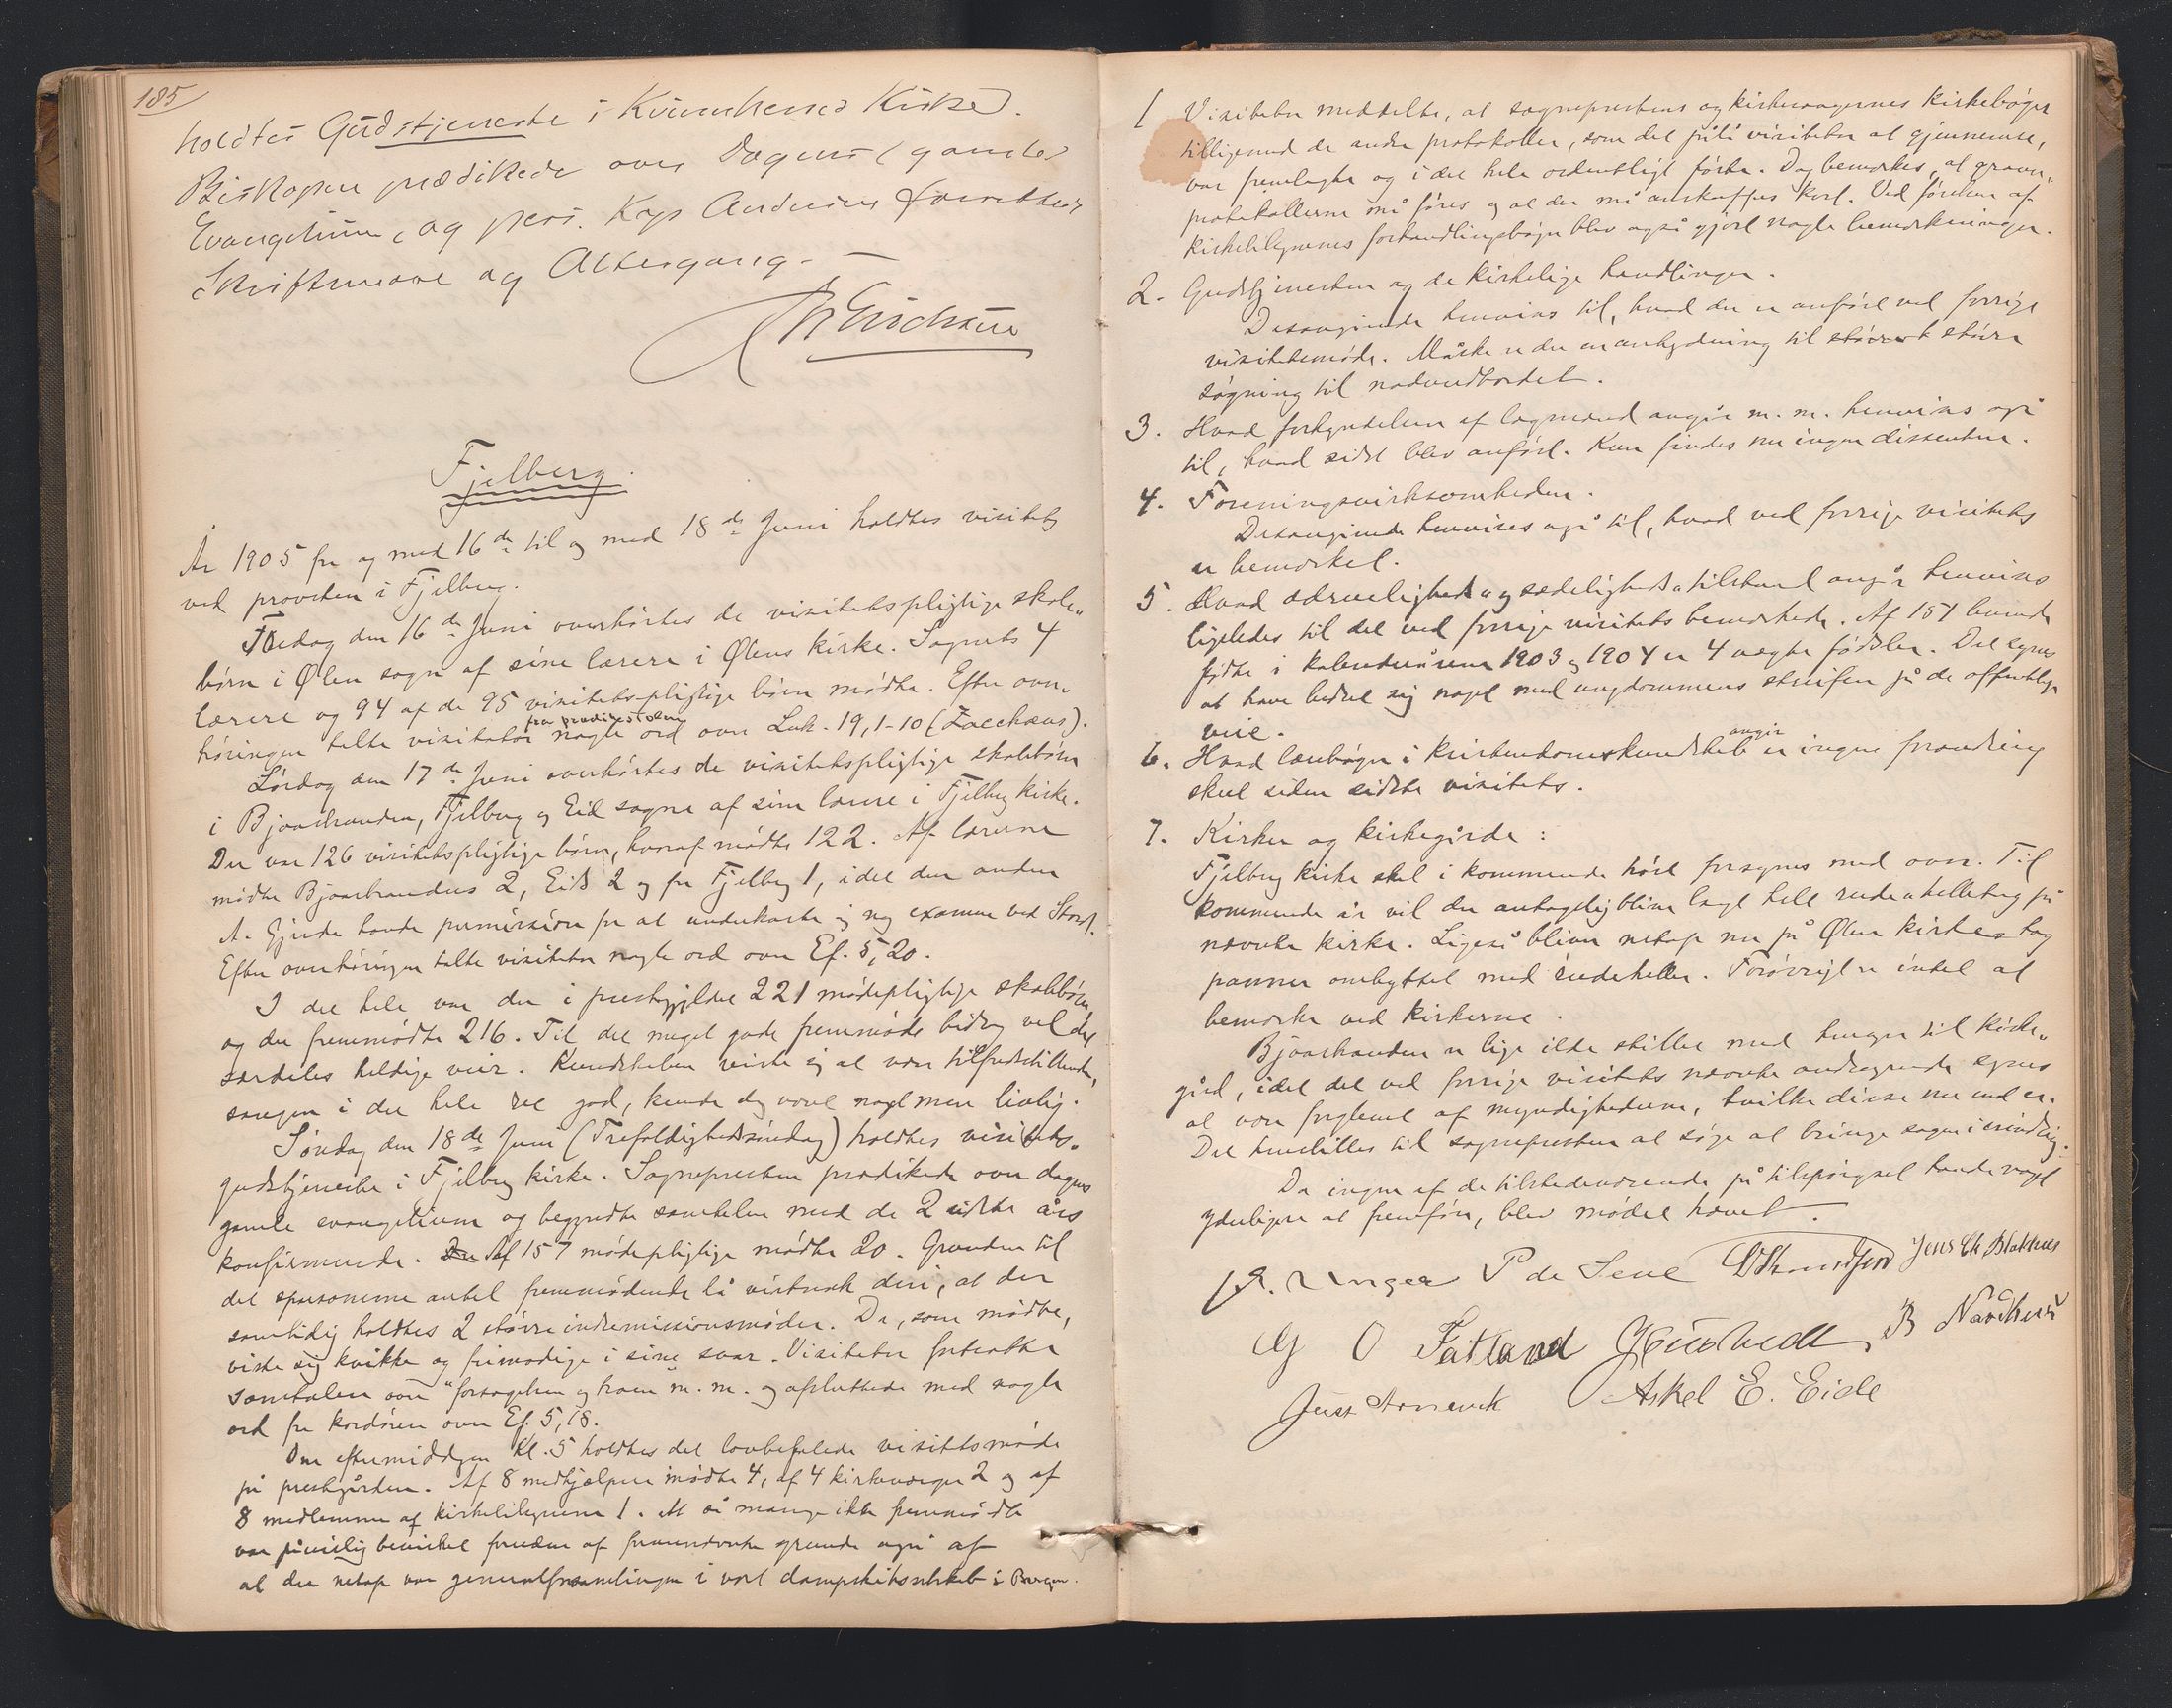 185
holdtes Gudstjeneste i Kvinnherred Kirke.
Biskopen prædikede over Dagens (gamle)
Evangelium, og pers. Kap Andersen forrettede
Skriftemaal og Altergang. —
Erichsen
Fjelberg.
År 1905 fra og med 16de til og med 18de Juni holdtes visitats
ved provsten i Fjelberg.
Fredag den 16de Juni overhørtes de visitatspligtige skole„
børn i Ølen sogn af sine lærere i Ølens kirke. Sognets 4
lærere og 94 af de 95 visitatspligtige børn mødte. Efter over„
høringen talte visitator fra prædikestolen nogle ord over Luk. 19,1-10 (Zacchæus).
Lørdag den 17de Juni overhørtes de visitatspligtige skolebørn
i Bjoastranden, Fjelberg og Eid sogne af sine lærere i Fjelberg kirke.
Der var 126 visitatspligtige børn, hvoraf mødte 122. Af lærerne
mødte Bjoastrandens 2, Eids 2 og fra Fjelberg 1, idet den anden
A. Gjerde havde permission for at underkaste sig ny examen ved Stord.
Efter overhøringen talte visitator nogle ord over Ef. 5,20.
I det hele var der i prestegjeldet 221 mødepligtige skolebørn,
og der fremmødte 216. Til det meget gode fremmøde bidrog vel det
særdeles heldige veir. Kundskaben viste sig at være tilfredsstillende,
sangen i det hele ret god, kunde dog været noget mere livlig.
Søndag den 18de Juni (Trefoldighedssøndag) holdtes visitats„
gudstjeneste i Fjelberg kirke. Sognepresten prædikede over dagens
gamle evangelium og begyndte samtalen med de 2 sidste års
konfirmerede. Af 157 mødepligtige mødte 20. Grunden til
det sparsomme antal fremmødende lå vistnok deri, at der
samtidig holdtes 2 større indremissionsmøder. De, som mødte,
viste sig kvikke og frimodige i sine svar. Visitator fortsatte
samtalen over "forsagelsen og troen" m. m. og afsluttede med nogle
ord fra kordøren over Ef. 5,18.
Om eftermiddagen kl. 5 holdtes det lovbefalede visitatsmøde
på prestegården. Af 8 medhjælpere mødte 4, af 4 kirkeværger 2 og af
8 medlemmer af kirketilsynene 1. At så mange ikke fremmødte
var bevirket foruden af grunde også af
at der netop var generalforsamlingen i vort dampskibsselskab i Bergen.
1 Visitator meddelte, at sogneprestens og kirkesangernes Kirkebøger
tilligemed de andre protokoller, som det påla visitator at gjennemse,
var fremlagte og i det hele ordentligt førte. Dog bemerkes, at grav„
protokollerne må føres og at der må anskaffes kort. Ved førelsen af
kirketilsynenes forhandlingsbøger blev også gjort nogle bemerkninger.
2. Gudstjenesten og de kirkelige handlinger.
Desangående henvises til, hvad der er anført ved forrige
visitatsmøde. Måske er der en antydning til større
søgning til nadverdbordet.
3. Hvad forkyndelsen af lægmænd angår m. m. henvises også
til, hvad sidst blev anført. Kun findes nu ingen dissentere.
4. Foreningsvirksomheden.
Desangående henvises også til, hvad ved forrige visitats
er bemerket.
5. Hvad ædrueligheds og sædelighedstilstand angår henvises
ligeledes til det ved forrige visitats bemerkede. Af 151 levende
fødte i kalenderårene 1903 og 1904 er 4 uægte fødsler. Det synes
at have bedret sig noget med ungdommens streifen på de offentlige
veie.
6. Hvad lærebøger i kristendomskundskab angår er ingen forandring
skeet siden sidste visitats.
7. Kirker og kirkegårde:
Fjelberg kirke skal i kommende høst forsynes med ovn. Til
kommende år vil der antagelig blive lagt helt rudehelletag på
nævnte kirke. Ligeså bliver netop nu på Ølen kirkes tag
panner ombyttet med rudeheller. Forøvrigt er intet at
bemerke ved kirkerne.
Bjoastranden er lige ilde stillet med hensyn til kirke„
gård, idet det ved forrige visitats nævnte andragende synes
at være forglemt af myndighederne, hvilke disse nu end er.
Det henstilles til sognepresten at søge at bringe sagen i erindring.
Da ingen af de tilstedeværende på tilspørgsel havde noget
yderligere at fremføre, blev mødet hævet.
Unger P de Seue Jens Ch Blakhus
G O Fatland B Nordhus
Askel E. Eide